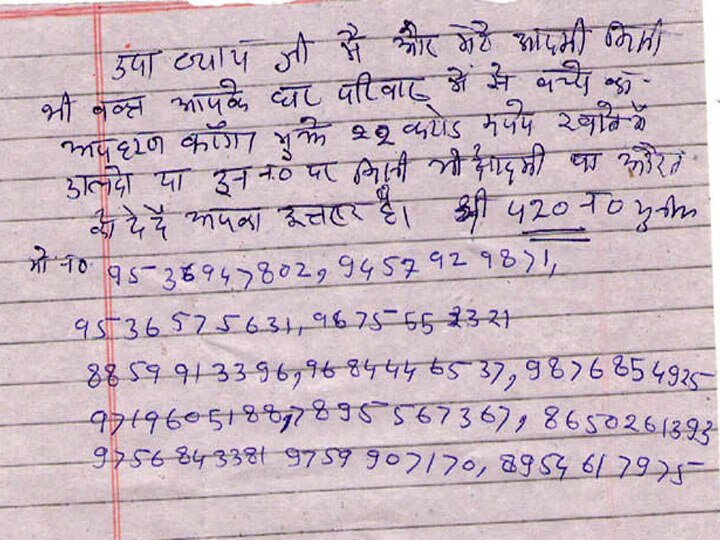 उषा व्यापा जी मै और मेरे आदमी किसी
भी वक्त आपके घर परिवार में से बच्चे का
अपहरण करेंगा मुझे 22 करोड रुपये खाते मै
डालदो या इन न० पर किसी भी आदमी या औरत
को दे दै आपका इन्तहार है। श्री 420 न०
मो न० 9536947802, 9457929871,
9536575631, 9675552321
8859913396, 9684446537, 9876854925
9719605188, 7895567367, 8650261393
9756843381 9759907170, 8954617975